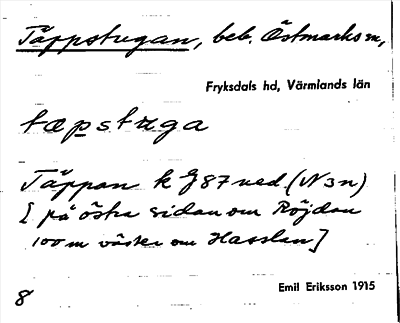 Täppstugan, beb. Östmarks sn,
Fryksdals hd, Värmlands län
tæpstuga
Täppan k J 87 ned (N 3 n)
[ på östra sidan om Röjdan
100 m väster om Hasslan]
8
Emil Eriksson 1915